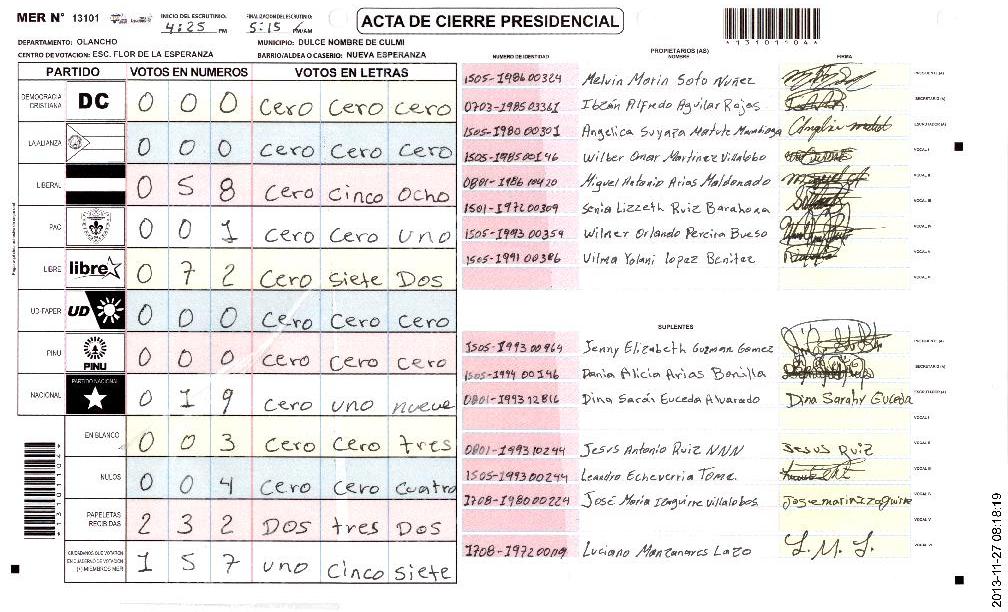 MER N° 13101
INICIO DEL ESCRUTINIO: 4:25 PM
FINALIZACION ESCRUTINIO: 5:15 PM/AM
ACTA DE CIERRE PRESIDENCIAL
*131011044*
DEPARTAMENTO: OLANCHO
MUNICIPIO: DULCE NOMBRE DE CULMI
CENTRO DE VOTACION: ESC. FLOR DE LA ESPERANZA
BARRIO/ALDEA O CASERIO: NUEVA ESPERANZA
PARTIDO VOTOS EN NUMEROS VOTOS EN LETRAS
DEMOCRACIA CRISTIANA DC 0 0 0 cero cero cero
LA ALIANZA 0 0 0 cero cero cero
LIBERAL 0 5 8 cero cinco ocho
PAC 0 0 1 cero cero uno
LIBRE libre 0 7 2 cero siete Dos
UD-FAPER UD 0 0 0 cero cero cero
PINU PINU 0 0 0 cero cero cero
NACIONAL PARTIDO NACIONAL 0 1 9 cero uno nueve
EN BLANCO 0 0 3 cero cero tres
NULOS 0 0 4 cero cero cuatro
PAPELETAS RECIBIDAS 2 3 2 Dos tres Dos
CIUDADANOS QUE VOTARON EN CUADERNO DE VOTACION (+) MIEMBROS MER 1 5 7 uno cinco siete
PROPIETARIOS (AS)
NUMERO DE IDENTIDAD NOMBRE FIRMA
1505-198600324 Melvin Marin Soto Nuñez PRESIDENTE (A)
0703-198503361 Ibzan Alfredo Aguilar Rojas SECRETARIO (A)
1505-1980 00301 Angelica Suyapa Matute ESCRUTADOR (A)
1505-1985 00146 Wilber Omar Martinez Villalobo VOCAL I
0801-1986 10420 Miguel Antonio Arias Maldonado VOCAL II
1501-1972 00309 Senia Lizzeth Ruiz Barahona VOCAL III
1505-1993 00354 Wilner Orlando Pereira Bueso VOCAL IV
1505-1991 00386 Vilma Yolani lopez Benitez VOCAL V
VOCAL VI
SUPLENTES
1505-1993 00964 Jenny Elizabeth Guzman Gomez PRESIDENTE (A)
1505-1994 00146 Dania Alicia Arias Bonilla SECRETARIO (A)
0801-199312816 Dina Sarai Euceda Alvarado Dina Sarahy Euceda ESCRUTADOR (A)
VOCAL I
0801-1993 10244 Jesus Antonio Ruiz NNN Jesus Ruiz VOCAL II
1505-1993 00244 Leandro Echeverria Tome. VOCAL III
1708-1980 00224 José Maria Izaguirre villalobos VOCAL IV
VOCAL V
1708-1972 00119 Luciano Manzanares Lazo L. M. L. VOCAL VI
2013-11-27 08:18:19